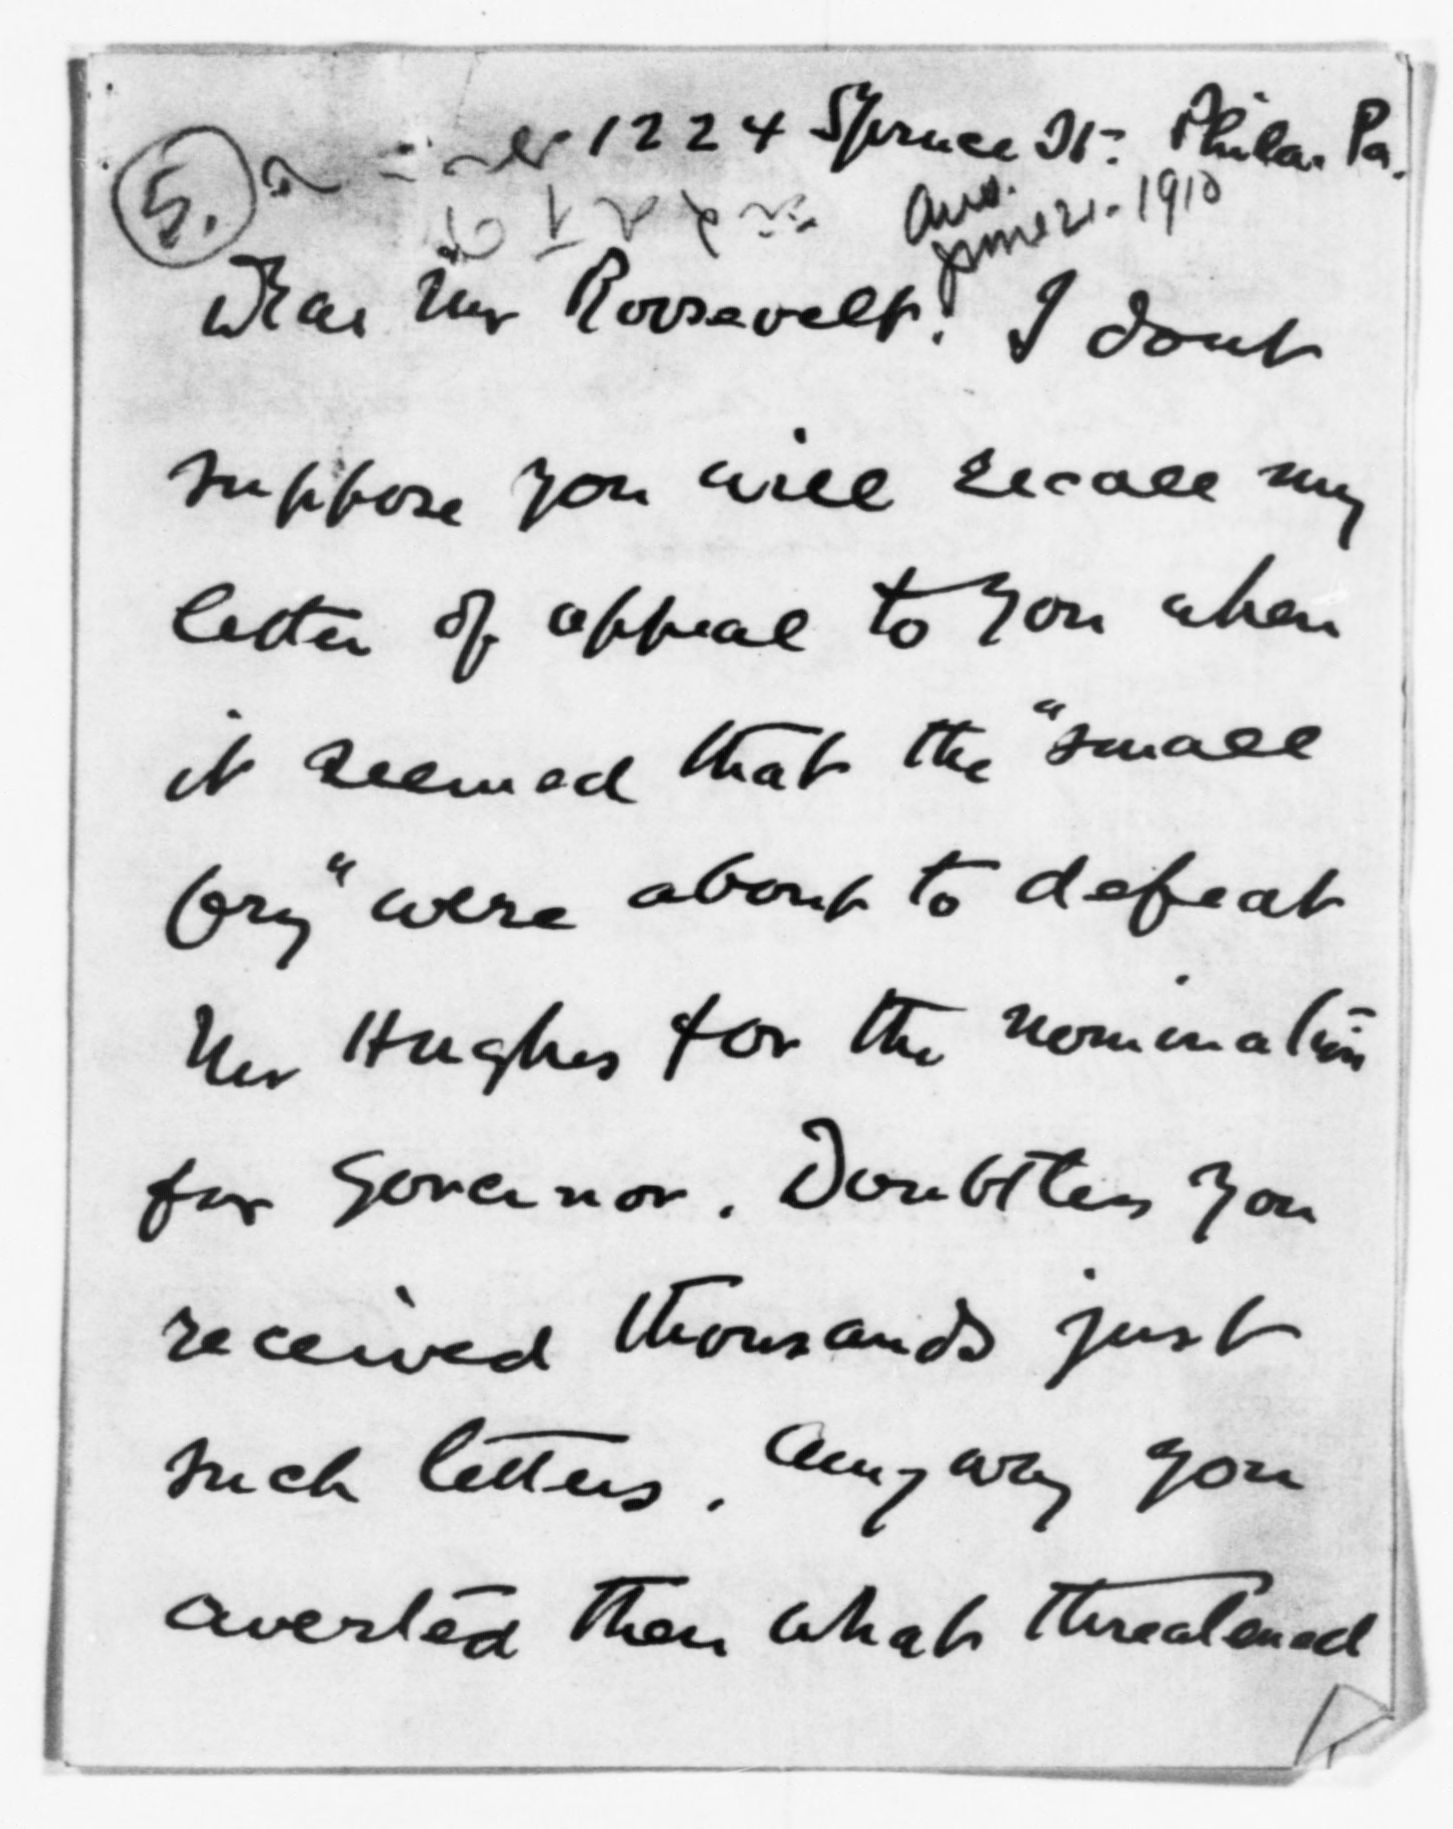 5.
1224 Spruce St. Phila. Pa.
Ans.
June 21-1910
Dear Mr Roosevelt! I dont
suppose you will recall my
letter of appeal to you when
it seemed that the "small
fry" were about to defeat
Mr Hughes for the nomination
for Governor. Doubtless you
received thousands just
such letters. Anyway you
averted then what threatened